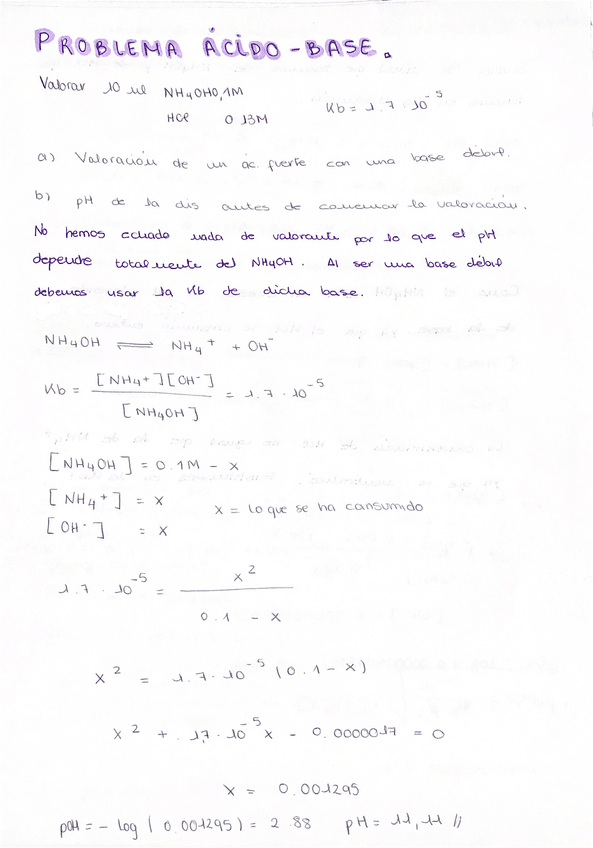 PROBLEMA ÁCIDO-BASE.
Valorar 10 ml NH4OH 0,1M Kb = 1.7 · 10^-5
HCl 0.13M
a) Valoración de un ác. fuerte con una base débil.
b) pH de la dis antes de comenzar la valoración.
No hemos echado nada de valorante por lo que el pH
depende totalmente del NH4OH. Al ser una base débil
debemos usar la Kb de dicha base.
NH4OH ⇌ NH4+ + OH-
Kb = [NH4+][OH-] / [NH4OH] = 1.7 · 10^-5
[NH4OH] = 0.1M - x
[NH4+] = x
x = lo que se ha consumido
[OH-] = x
1.7 · 10^-5 = x^2 / 0.1 - x
x^2 = 1.7 · 10^-5 (0.1 - x)
x^2 + 1,7 · 10^-5 x - 0.0000017 = 0
x = 0.001295
pOH = - log (0.001295) = 2.88 pH = 11,11 //